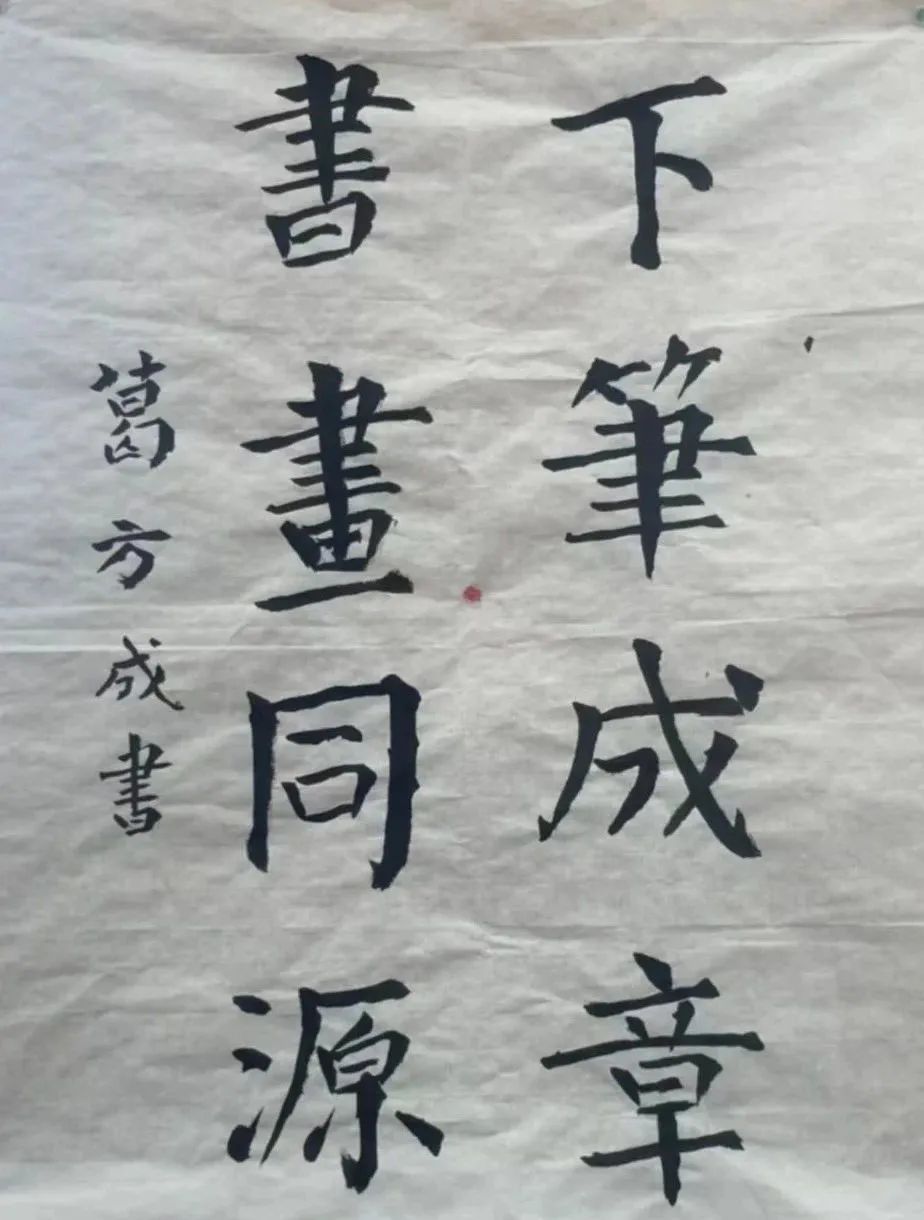 下筆成章
書畫同源
葛方成書